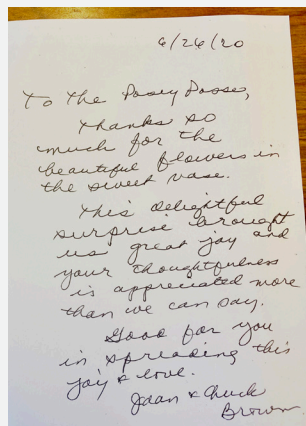 6/26/20
To the Posey Posse,
Thanks so
much for the
beautiful flowers in
the sweet vase.
This delightful
surprise brought
us great joy and
your thoughtfulness
is appreciated more
than we can say.
Good for you
in spreading this
joy & love.
Joan & Chuck
Brown